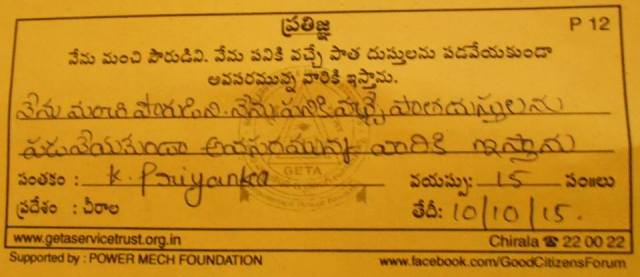 ప్రతిజ్ఞ P 12
నేను మంచి పౌరుడిని. నేను పనికి వచ్చే పాత దుస్తులను పడవేయకుండా
అవసరమున్న వారికి ఇస్తాను.
నేను మంచి పౌరుడిని. నేను పనికి వచ్చే పాత దుస్తులను
పడవేయకుండా అవసరమున్న వారికి ఇస్తాను
GETA
సంతకం : K. Priyanka వయస్సు: 15 సం॥లు
ప్రదేశం : చీరాల తేదీ: 10/10/15.
www.getaservicetrust.org.in Chirala ☎ 22 00 22
Supported by : POWER MECH FOUNDATION www.facebook.com/GoodCitizensForum